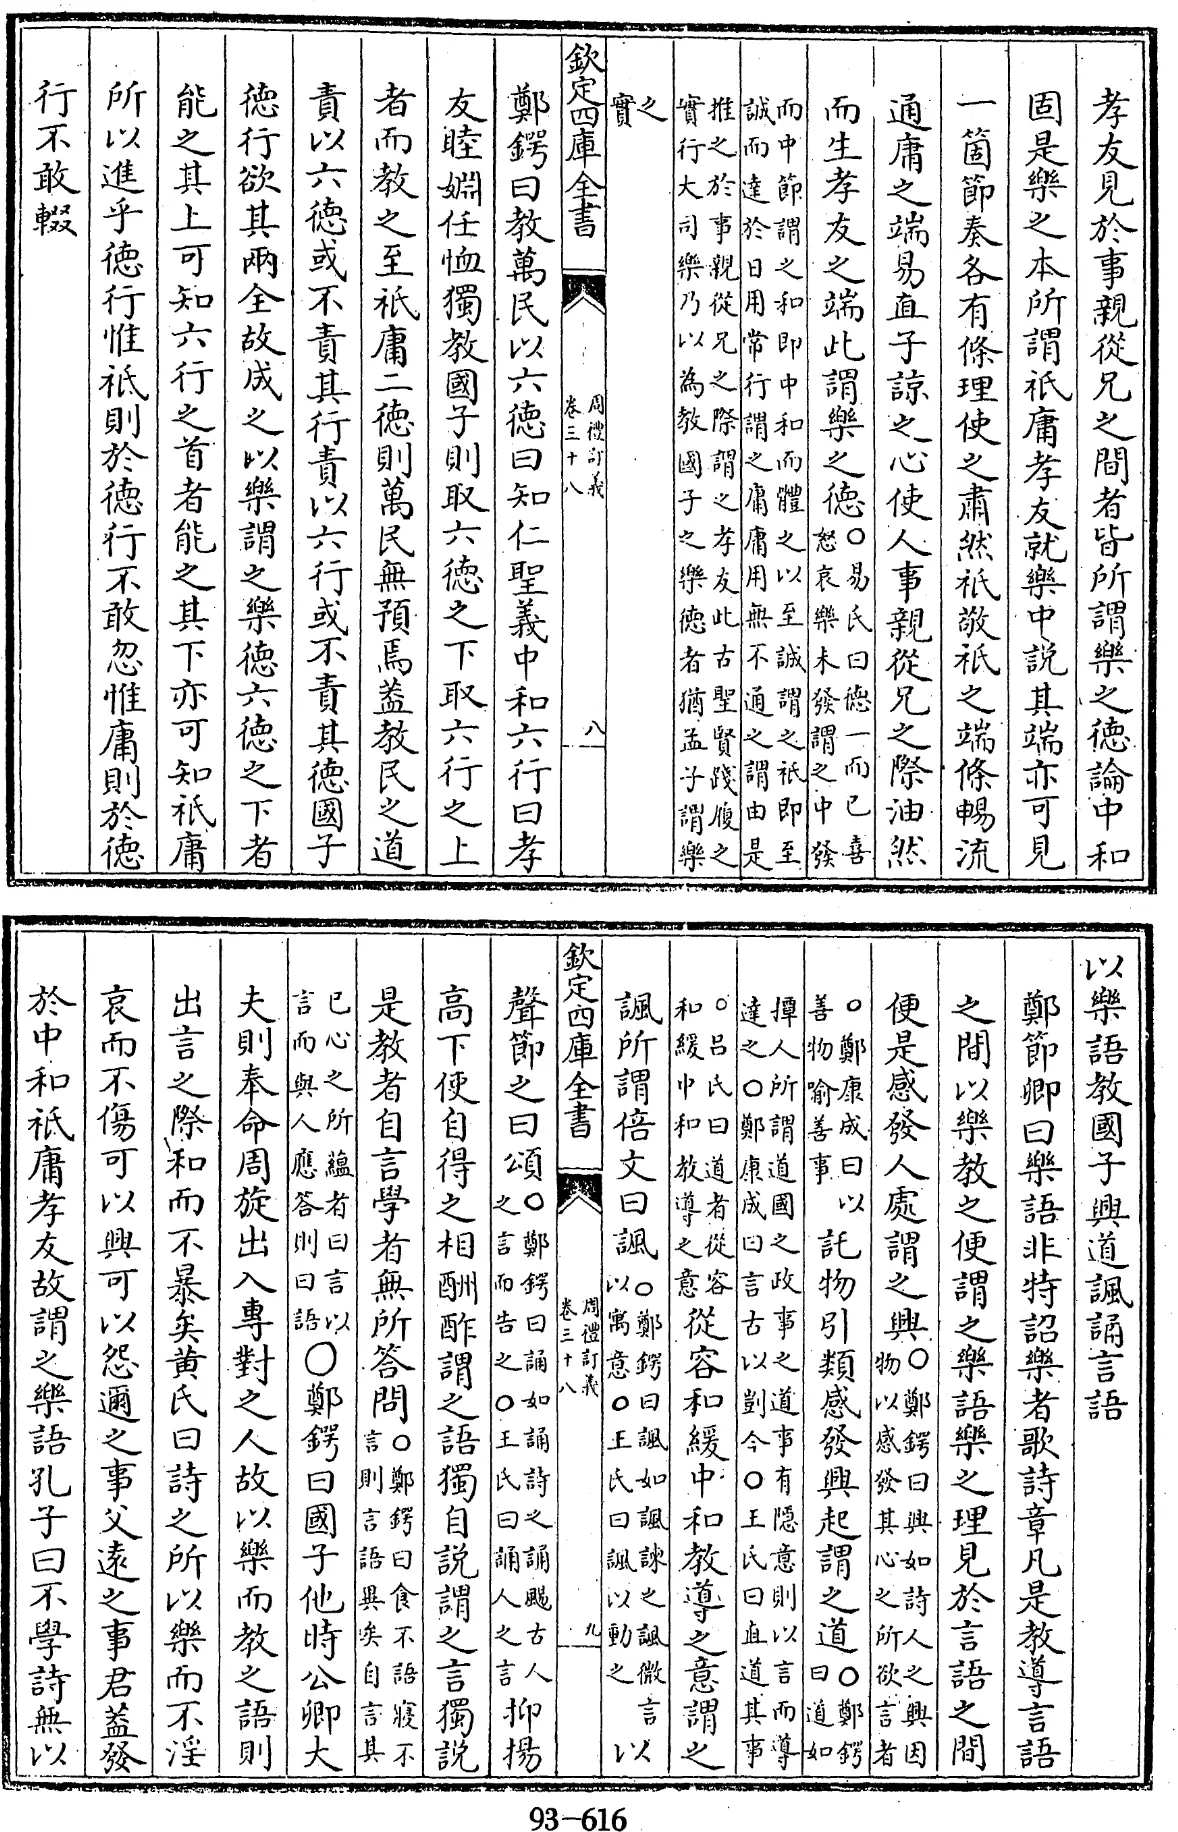 孝友見於事親從兄之間者皆所謂樂之德論中和
固是樂之本所謂祗庸孝友就樂中說其端亦可見
一箇節奏各有條理使之肅然祗敬祗之端條暢流
通庸之端易直子諒之心使人事親從兄之際油然
而生孝友之端此謂樂之德○易氏曰德一而已喜
怒哀樂未發謂之中發
而中節謂之和即中和而體之以至誠謂之祗即至
誠而達於日用常行謂之庸庸用無不通之謂由是
推之於事親從兄之際謂之孝友此古聖賢踐履之
實行大司樂乃以為教國子之樂德者猶孟子謂樂
之
實
欽定四庫全書
周禮訂義
卷三十八
八
鄭鍔曰教萬民以六德曰知仁聖義中和六行曰孝
友睦婣任恤獨教國子則取六德之下取六行之上
者而教之至祗庸二德則萬民無預焉蓋教民之道
責以六德或不責其行責以六行或不責其德國子
德行欲其兩全故成之以樂謂之樂德六德之下者
能之其上可知六行之首者能之其下亦可知祗庸
所以進乎德行惟祗則於德行不敢忽惟庸則於德
行不敢輟
以樂語教國子興道諷誦言語
鄭節卿曰樂語非特詔樂者歌詩章凡是教導言語
之間以樂教之便謂之樂語樂之理見於言語之間
便是感發人處謂之興○鄭鍔曰興如詩人之興因
物以感發其心之所欲言者
○鄭康成曰以
善物喻善事
託物引類感發興起謂之道○鄭鍔
曰道如
撢人所謂道國之政事之道事有隱意則以言而導
達之○鄭康成曰言古以剴今○王氏曰直道其事
○呂氏曰道者從容
和緩中和教導之意
從容和緩中和教導之意謂之
諷所謂倍文曰諷○鄭鍔曰諷如諷諫之諷微言以
以寓意○王氏曰諷以動之
欽定四庫全書
周禮訂義
卷三十八
九
聲節之曰頌○鄭鍔曰誦如誦詩之誦颺古人
之言而告之○王氏曰誦人之言
抑揚
高下使自得之相酬酢謂之語獨自說謂之言獨說
是教者自言學者無所答問○鄭鍔曰食不語寢不
言則言語異矣自言其
已心之所蘊者曰言以
言而與人應答則曰語
○鄭鍔曰國子他時公卿大
夫則奉命周旋出入專對之人故以樂而教之語則
出言之際和而不暴矣黃氏曰詩之所以樂而不淫
哀而不傷可以興可以怨邇之事父遠之事君蓋發
於中和祗庸孝友故謂之樂語孔子曰不學詩無以
93-616